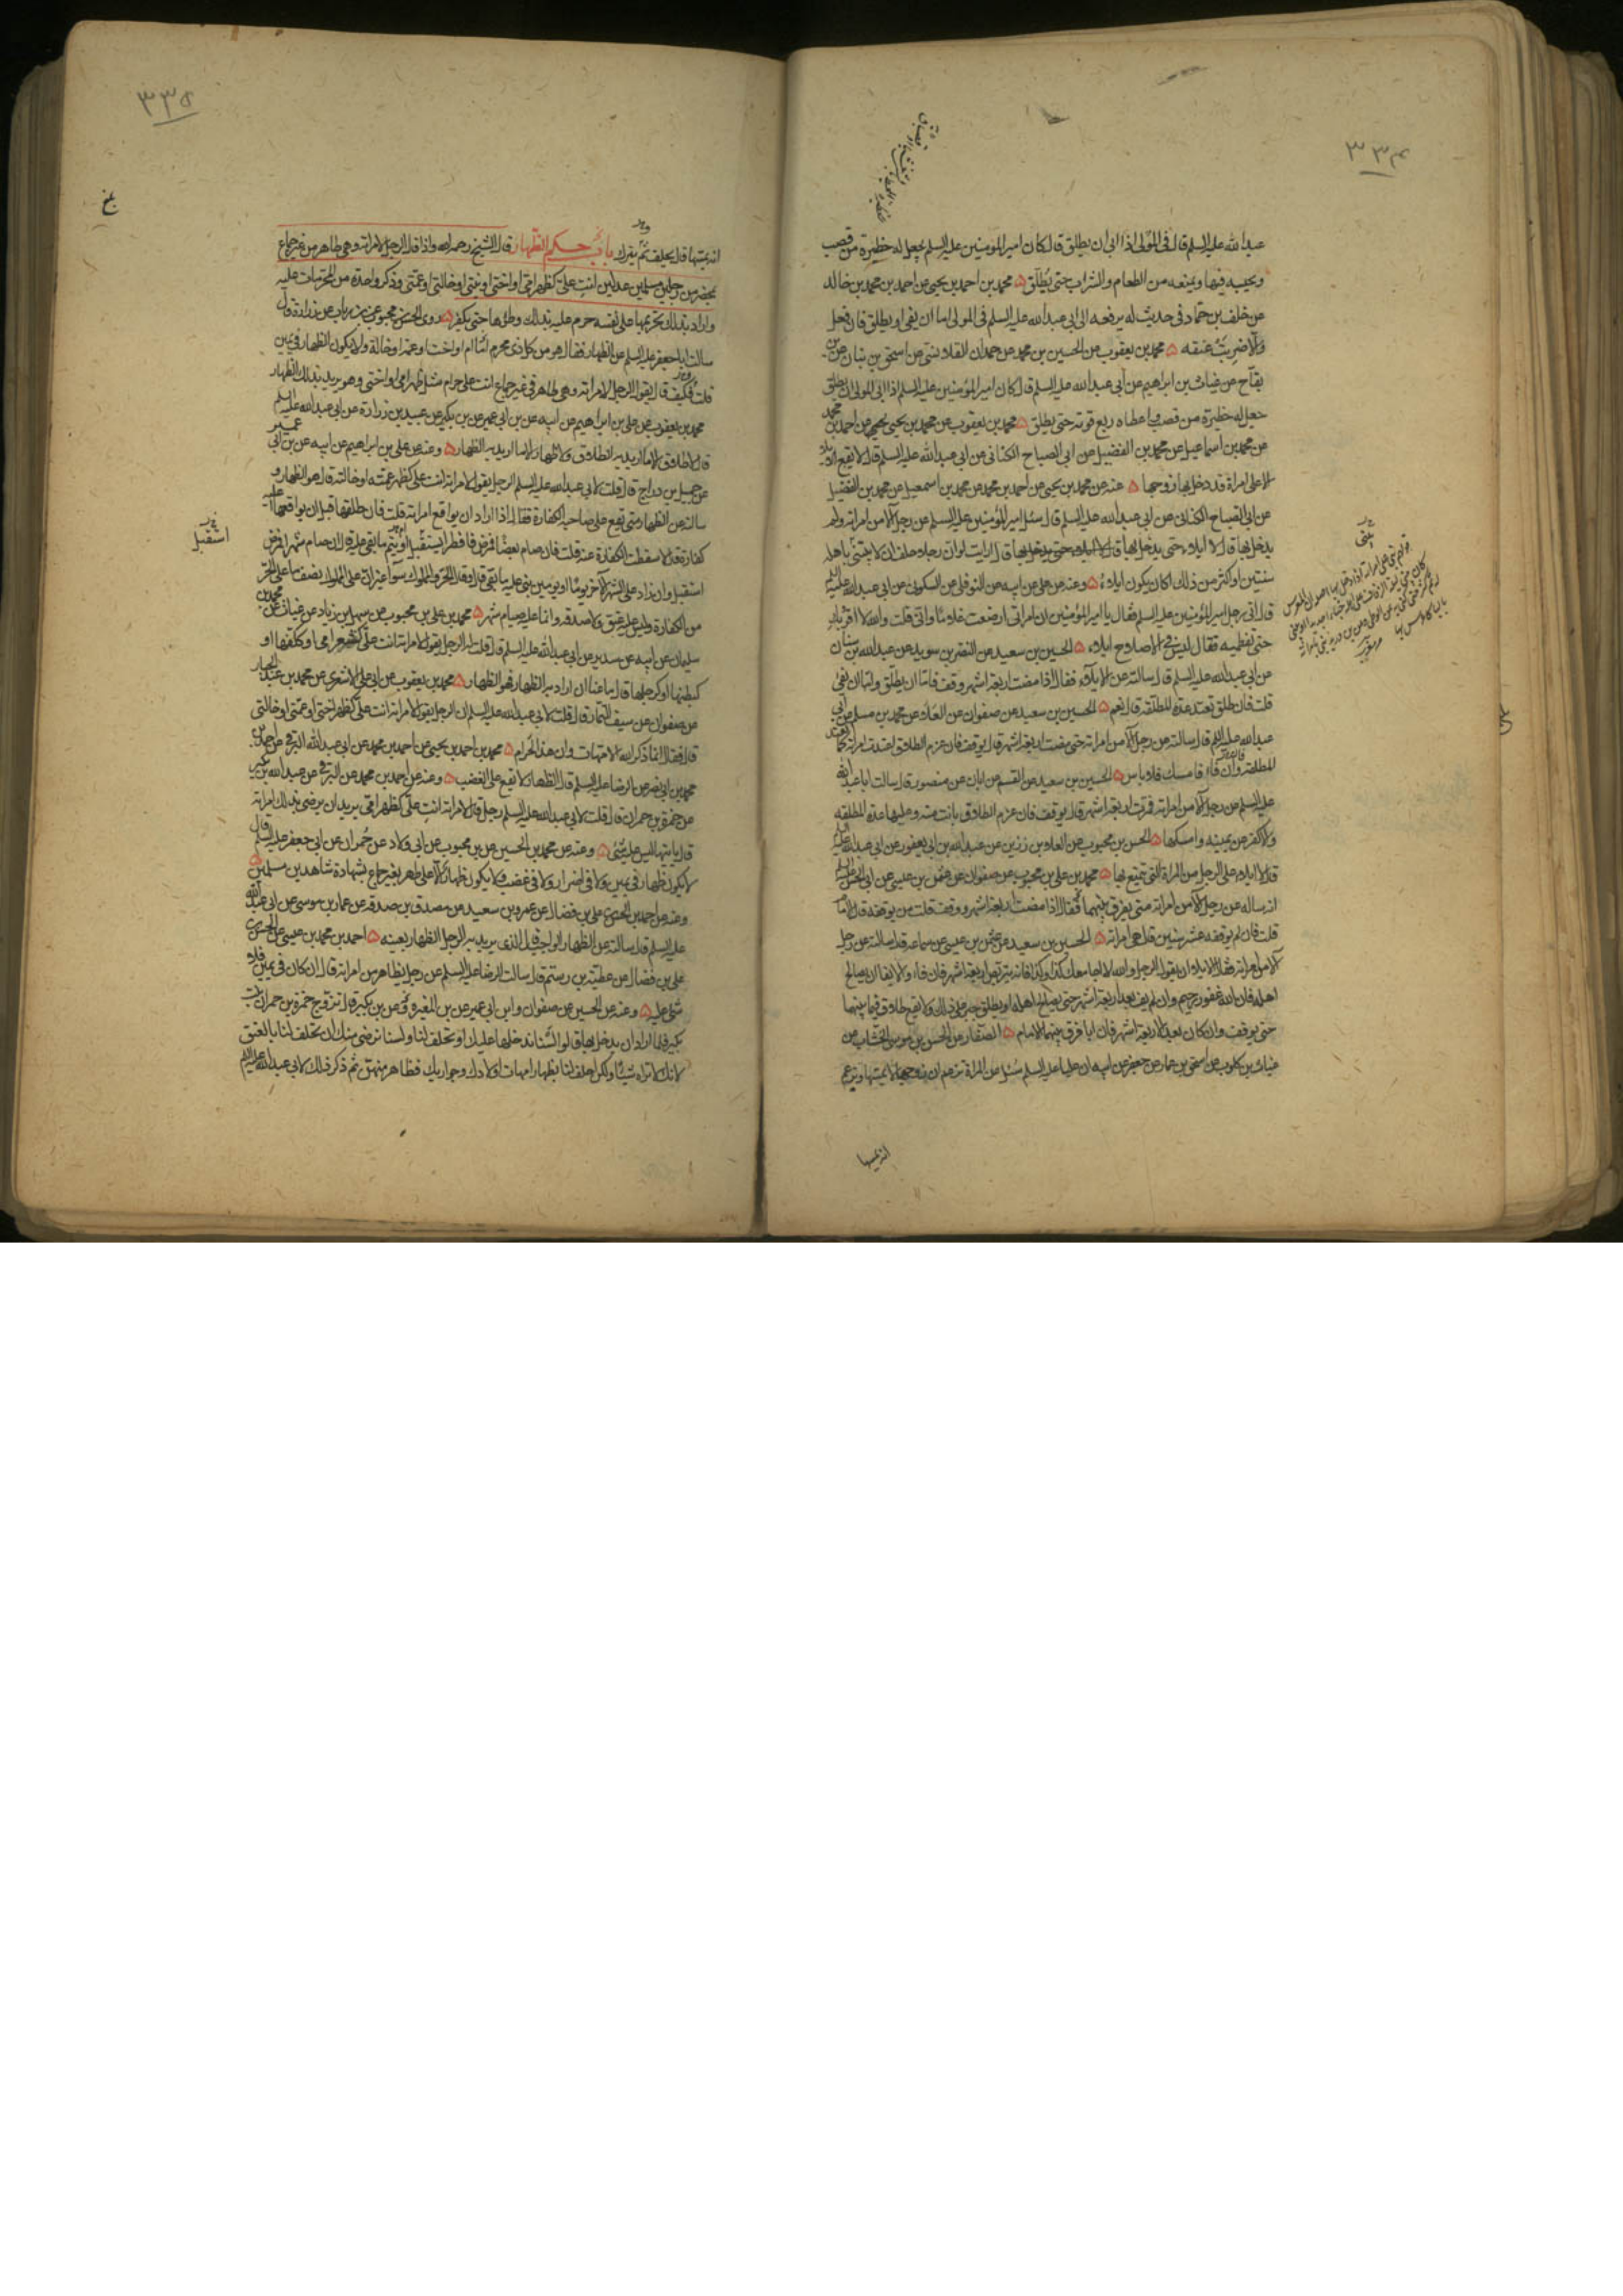 ٣٣٤
عبد الله عليه السلم قال في المولى اذا ابى ان يطلق قال كان امير المومنين عليه السلم يجعل له حظيرة من قصب
ويحبسه فيها ويمنعه من الطعام والشراب حتى يطلق ۵ محمد بن احمد بن يحيى عن احمد بن محمد بن خالد
عن خلف بن حماد في حديث له يرفعه الى ابى عبد الله عليه السلم في المولى اما ان يفئ او يطلق فان فعل
والا ضربت عنقه ۵ محمد بن يعقوب عن الحسين بن محمد عن حمدان القلانسى عن اسحق بن بنان عن بن
بقاح عن غياث بن ابراهيم عن ابى عبد الله عليه السلم قال كان امير المؤمنين عليه السلم اذا ابى المولى ان يطلق
جعل له حظيرة من قصب واعطاه ربع قوته حتى يطلق ۵ محمد بن يعقوب عن محمد بن يحيى عن احمد بن محمد
عن محمد بن اسماعيل عن محمد بن الفضيل عن ابى الصباح الكنانى عن ابى عبد الله عليه السلم قال لا يقع الايلاء
الا على امراة قد دخل بها زوجها ۵ عنه عن محمد بن يحيى عن احمد بن محمد عن محمد بن اسمعيل عن محمد بن الفضيل
عن ابى الصباح الكنانى عن ابى عبد الله عليه السلم قال سئل امير المؤمنين عليه السلم عن رجل آلا من امراته ولم
يدخل بها قال لا ايلاء حتى يدخل بها قال ارايت لو ان رجلا حلف ان لا يبتنى باهله
سنتين او اكثر من ذلك اكان يكون ايلاء ۵ وعنه عن على عن ابيه عن النوفلى عن السكونى عن ابى عبد الله عليه السلم
قال اتى رجل امير المؤمنين عليه السلم فقال يا امير المؤمنين ان امراتى ارضعت غلاما وانى قلت والله لا اقربك
حتى تفطميه فقال ليس فى الاصلاح ايلاء ۵ الحسين بن سعيد عن النضر بن سويد عن عبد الله بن سنان
عن ابى عبد الله عليه السلم قال سالته عن الايلاء فقال اذا مضت اربعة اشهر وقف فاما ان يطلق واما ان يفئ
قلت فان طلق تعتد عدة المطلقة قال نعم ۵ الحسين بن سعيد عن صفوان عن العلاء عن محمد بن مسلم عن ابى
عبد الله عليه السلم قال سالته عن رجل آلا من امراته حتى مضت اربعة اشهر قال يوقف فان عزم الطلاق اعتدت امراته كما تعتد
المطلقة وان فاء فامسك فلا باس ۵ الحسين بن سعيد عن القسم عن ابان عن منصور قال سالت ابا عبد الله
عليه السلم عن رجل آلا من امراته فمرت اربعة اشهر قال يوقف فان عزم الطلاق بانت منه وعليها عدة المطلقه
والا كفر عن يمينه وامسكها ۵ الحسن بن محبوب عن العلاء بن رزين عن عبد الله بن ابى يعفور عن ابى عبد الله عليه السلم
قال لا ايلاء على الرجل من المراة التى تمتع بها ۵ محمد بن على بن محبوب عن صفوان عن عثمن بن عيسى عن ابى الحسن عليه السلم
انه ساله عن رجل آلا من امراته متى يفرق بينهما فقال اذا مضت اربعة اشهر ووقف قلت من يوقفه قال الامام
قلت فان لم يوقفه عشر سنين قال هى امراته ۵ الحسين بن سعيد عن عثمن بن عيسى عن سماعه قال سالته عن رجل
آلا من امراته فقال الايلاء ان يقول الرجل والله لا اجامعك كذا وكذا فانه يتربص اربعة اشهر فان فاء والايفاء ان يصالح
اهله فان الله غفور رحيم وان لم يفئ بعد اربعة اشهر حتى يصالح اهله او يطلق جبر على ذلك ولا يقع طلاق فيما بينهما
حتى يوقف وان كان بعد الاربعة اشهر فان ابا فرق بينهما الامام ۵ الصفار عن الحسن بن موسى الخشاب عن
غياث بن كلوب عن اسحق بن عمار عن جعفر عن ابيه ان عليا عليه السلم سئل عن المراة تزعم ان زوجها لا يمسها ويزعم
انه يمسها
٣٣٥
انه يمسها قال يحلف ثم يترك باب حكم الظهار قال الشيخ رحمه الله واذا قال الرجل لامراته وهى طاهر من غير جماع
بمحضر من رجلين مسلمين عدلين انت على كظهر امى او اختى او بنتى او خالتى او عمتى وذكر واحدة من المحرمات عليه
واراد بذلك تحريمها على نفسه حرم عليه بذلك وطؤها حتى يكفر ۵ روى الحسن بن محبوب عن بن رياب عن زرارة قال
سالت ابا جعفر عليه السلم عن الظهار فقال هو من كل ذى محرم ام او اخت او عمة او خالة ولا يكون الظهار فى يمين
قلت فكيف قال يقول الرجل لامراته وهى طاهر فى غير جماع انت على حرام مثل ظهر امى او اختى وهو يريد بذلك الظهار
محمد بن يعقوب عن على بن ابراهيم عن ابيه عن بن ابى عمير عن بن بكير عن عبيد بن زرارة عن ابى عبد الله عليه السلم
قال لا طلاق الا ما اريد به الطلاق ولا ظهار الا ما اريد به الظهار ۵ وعنه عن على بن ابراهيم عن ابيه عن بن ابى عمير
عن جميل بن دراج قال قلت لابى عبد الله عليه السلم الرجل يقول لامراته انت على كظهر عمته او خالته قال هو الظهار و
سالته عن الظهار متى تقع على صاحبه الكفارة فقال اذا اراد ان يواقع امراته قلت فان طلقها قبل ان يواقعها اعليه
كفارة قال لا سقطت الكفارة عنه قلت فان صام بعضا فمرض فافطر ايستقبل او يتم ما بقى عليه قال ان صام شهرا فمرض
استقبل وان زاد على الشهر الآخر يوما او يومين بنى على ما بقى قال وقال الحر والمملوك سواء غير ان على المملوك نصف ما على الحر
من الكفارة وليس عليه عتق ولا صدقه وانما عليه صيام شهر ۵ محمد بن على بن محبوب عن سهل بن زياد عن غياث عن محمد بن
سليمان عن ابيه عن سدير عن ابى عبد الله عليه السلم قال قلت له الرجل يقول لامراته انت على كشعر امى او ككفها او
كبطنها او كرجلها قال ما عنا ان اراد به الظهار فهو الظهار ۵ محمد بن يعقوب عن ابى على الاشعرى عن محمد بن عبد الجبار
عن صفوان عن سيف التمار قال قلت لابى عبد الله عليه السلم ان الرجل يقول لامراته انت على كظهر اختى او عمتى او خالتى
قال فقال انما ذكر الله الامهات وان هذا لحرام ۵ محمد بن احمد بن يحيى عن احمد بن محمد عن ابى عبد الله البرقى عن احمد بن
محمد بن ابى نصر عن الرضا عليه السلم قال الظهار لا يقع على الغضب ۵ وعنه عن احمد بن محمد عن البرقى عن عبد الله بن بكير
عن حمزة بن حمران قال قلت لابى عبد الله عليه السلم رجل قال لامراته انت على كظهر امى يريد ان يرضى بذلك امراته
قال ياتيها ليس عليه شئ ۵ وعنه عن محمد بن الحسين عن بن محبوب عن ابى ولاد عن حمران عن ابى جعفر عليه السلم قال
لا يكون ظهار فى يمين ولا فى اضرار ولا فى غضب ولا يكون ظهار الا على طهر بغير جماع بشهادة شاهدين مسلمين ۵
وعنه عن احمد بن الحسن بن على بن فضال عن عمرو بن سعيد عن مصدق بن صدقه عن عمار بن موسى عن ابى عبد الله
عليه السلم قال سالته عن الظهار الواجب قال الذى يريد به الرجل الظهار بعينه ۵ احمد بن محمد بن عيسى عن الحسن بن
على بن فضال عن عطية بن رستم قال سالت الرضا عليه السلم عن رجل يظاهر من امراته قال ان كان فى يمين فلا
شئ عليه ۵ وعنه عن الحسين عن صفوان وابن ابى عمير عن بن المغيرة وغيره عن بن بكير قال تزوج حمزة بن حمران بنت
بكير فلما اراد ان يدخل بها قالوا لسنا ندخلها عليك او تحلف لنا ولسنا نرضى منك ان تحلف لنا بالعتق
لانك لا تراه شيئا ولكن احلف لنا بظهار امهات اولادك وجواريك فظاهر منهن ثم ذكر ذلك لابى عبد الله عليه السلم
استقبل